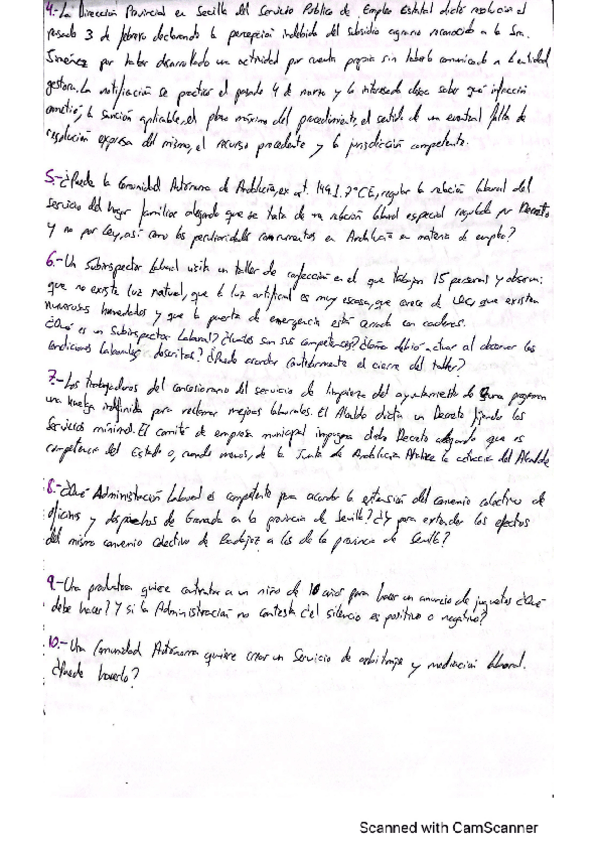 4.- La Dirección Provincial en Sevilla del Servicio Público de Empleo Estatal dictó resolución el
pasado 3 de febrero declarando la percepción indebida del subsidio agrario reconocido a la Sra.
Jiménez por haber desarrollado una actividad por cuenta propia sin haberlo comunicado a la entidad
gestora. La notificación se practicó el pasado 4 de marzo y la interesada desea saber qué infracción
cometió, la sanción aplicable, el plazo máximo del procedimiento, el sentido de una eventual falta de
resolución expresa del mismo, el recurso procedente y la jurisdicción competente.
5.- ¿Puede la Comunidad Autónoma de Andalucía, ex art. 149.1.7ª CE, regular la relación laboral del
servicio del hogar familiar alegando que se trata de una relación laboral especial regulada por Decreto
y no por Ley, así como las peculiaridades concurrentes en Andalucía en materia de empleo?
6.- Un Subinspector laboral visita un taller de confección en el que trabajan 15 personas y observa:
que no existe luz natural, que la luz artificial es muy escasa, que carece de que existen
numerosas humedades y que la puerta de emergencia está cerrada con cadenas.
¿Qué es un Subinspector Laboral? ¿Cuáles son sus competencias? ¿Cómo debió actuar al observar las
condiciones laborales descritas? ¿Puede acordar cautelarmente el cierre del taller?
7.- Los trabajadores del concesionario del servicio de limpieza del ayuntamiento de preparan
una huelga indefinida para reclamar mejoras laborales. El Alcalde dicta un Decreto fijando los
servicios mínimos. El comité de empresa municipal impugna dicho Decreto alegando que es
competencia del Estado o, cuando menos, de la Junta de Andalucía. Analice la actuación del Alcalde
8.- ¿Qué Administración laboral es competente para acordar la extensión del convenio colectivo de
oficinas y despachos de Granada en la provincia de Sevilla? ¿Y para extender los efectos
del mismo convenio colectivo de Badajoz a los de la provincia de Sevilla?
9.- Una productora quiere contratar a un niño de 10 años para hacer un anuncio de juguetes ¿Qué
debe hacer? Y si la Administración no contesta ¿el silencio es positivo o negativo?
10.- Una Comunidad Autónoma quiere crear un Servicio de arbitraje y mediación laboral.
¿Puede hacerlo?
Scanned with CamScanner